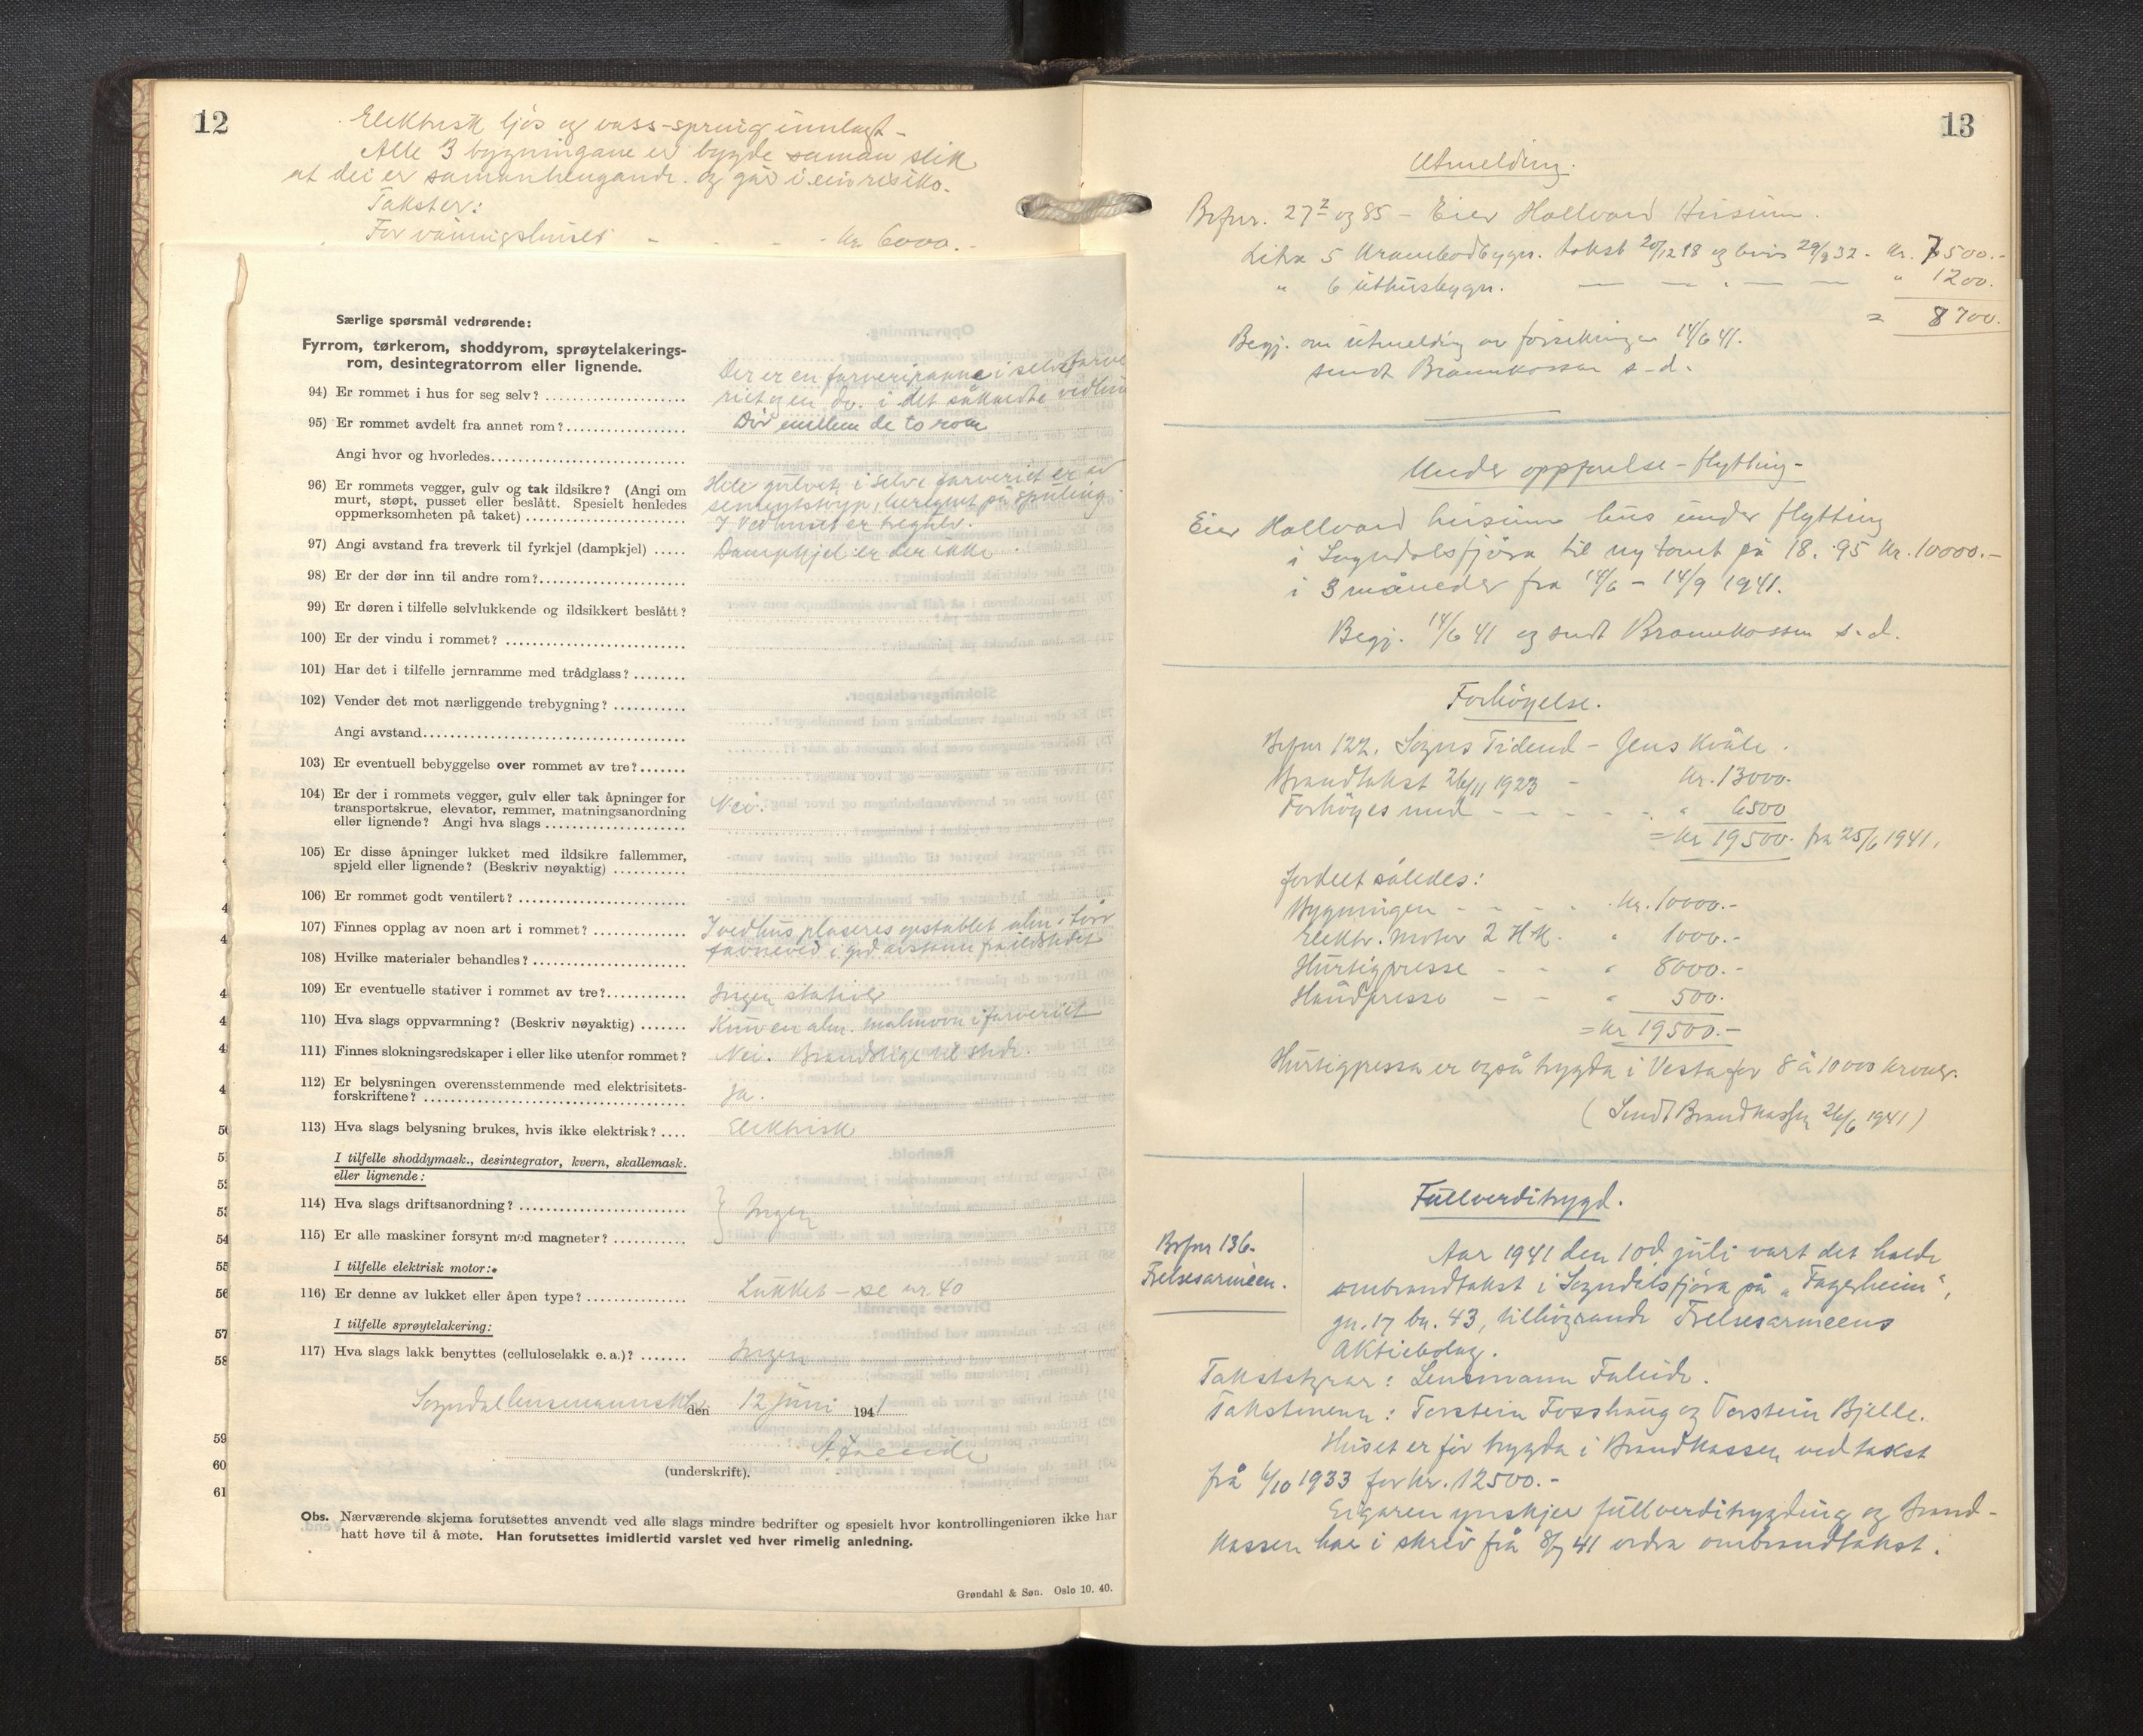 12
Elektrisk ljos og vass-spring innlagt -
Alle 3 bygningane er bygde saman slik
at dei er samanhengande. og går i ein risiko.
Takster:
For våningshuset - - - kr. 6000.-
Særlige spørsmål vedrørende:
Fyrrom, tørkerom, shoddyrom, sprøytelakerings-
rom, desintegratorrom eller lignende.
Der er en farveripanne i selve farve
94) Er rommet i hus for seg selv?
riet og en do. i det såkaldte vedhus
95) Er rommet avdelt fra annet rom?
Dör mellem de to rom
Angi hvor og hvorledes
96) Er rommets vegger, gulv og tak ildsikre? (Angi om
murt, støpt, pusset eller beslått. Spesielt henledes
oppmerksomheten på taket)
Hele gulvet i selve farveriet er av
sementstöyp, beregnet på spuling.
I Vedhuset er tregulv.
97) Angi avstand fra treverk til fyrkjel (dampkjel)
Dampkjel er der ikke.
98) Er der dør inn til andre rom?
99) Er døren i tilfelle selvlukkende og ildsikkert beslått?
100) Er der vindu i rommet?
101) Har det i tilfelle jernramme med trådglass?
102) Vender det mot nærliggende trebygning?
Angi avstand
103) Er eventuell bebyggelse over rommet av tre?
104) Er der i rommets vegger, gulv eller tak åpninger for
transportskrue, elevator, remmer, matningsanordning
eller lignende? Angi hva slags
Nei.
105) Er disse åpninger lukket med ildsikre fallemmer,
spjeld eller lignende? (Beskriv nøyaktig)
106) Er rommet godt ventilert?
107) Finnes opplag av noen art i rommet?
I vedhus plaseres opstablet alm. törr
108) Hvilke materialer behandles?
favneved i god avstann fra ildstedet
109) Er eventuelle stativer i rommet av tre?
Ingen stativer
110) Hva slags oppvarmning? (Beskriv nøyaktig)
Kun en alm. malmovn i farveriet
111) Finnes slokningsredskaper i eller like utenfor rommet?
Nei. Brandstige til stede.
112) Er belysningen overensstemmende med elektrisitets-
forskriftene?
Ja.
113) Hva slags belysning brukes, hvis ikke elektrisk?
Elektrisk
I tilfelle shoddymask., desintegrator, kvern, skallemask.
eller lignende:
114) Hva slags driftsanordning?
Ingen
115) Er alle maskiner forsynt med magneter?
I tilfelle elektrisk motor:
116) Er denne av lukket eller åpen type?
Lukket - se nr. 40
I tilfelle sprøytelakering:
117) Hva slags lakk benyttes (celluloselakk e. a.)?
Ingen
Sogndal lensmannsktr. den 12 juni 1941
A. Faleide
(underskrift).
Obs. Nærværende skjema forutsettes anvendt ved alle slags mindre bedrifter og spesielt hvor kontrollingeniøren ikke har
hatt høve til å møte. Han forutsettes imidlertid varslet ved hver rimelig anledning.
Grøndahl & Søn. Oslo 10. 40.
13
Utmelding.
Brfnr. 27² og 85 - Eier Hallvard Husum.
Litra 5 Krambodbygn. takst 20/12 18 og brev 29/9 32 - kr. 7500.-
" 6 uthusbygn. — — " — — " 1200.
= 8700.
Begj. om utmelding av forsikringen 14/6 41.
sendt Brannkassen s.d.
Under oppførelse - flytting -
Eier Hallvard Husum hus under flytting
i Sogndalsfjöra til ny tomt på 18. 95 kr. 10000.-
i 3 måneder fra 14/6 - 14/9 1941.
Begj. 14/6 41 og sendt Brannkassen s.d.
Forhögelse.
Brfnr 122. Sogns Tidend - Jens Kvåle.
Brandtakst 26/11 1923 - kr. 13000.
Forhöges med - - - - " 6500
= kr 19500. fra 25/6 1941.
fordelt således:
Bygningen - - - - kr. 10000.-
Elektr. motor 2 H.K. " 1000.-
Hurtigpresse - - " 8000.-
Handpresse - - " 500.
= kr 19500.-
Hurtigpressa er også trygda i Vesta for 8 à 10000 kroner.
(Sendt Brandkassen 26/6 1941)
Fullverditrygd.
Brfnr 136.
Frelsesarmeen.
Aar 1941 den 10d. juli vart det halde
ombrandtakst i Sogndalsfjöra på "Fagerheim",
gn. 17 bn. 43, tilhöyrande Frelsesarmeens
Aktiebolag.
Takststyrar: Lensmann Faleide.
Takstmenn: Torstein Fosshaug og Torstein Bjelle.
Huset er för trygda i Brandkassen ved takst
frå 6/10 1933 for kr. 12500.-
Eigaren ynskjer fullverditrygding og Brand-
kassen har i skriv frå 8/7 41 ordra ombrandtakst.